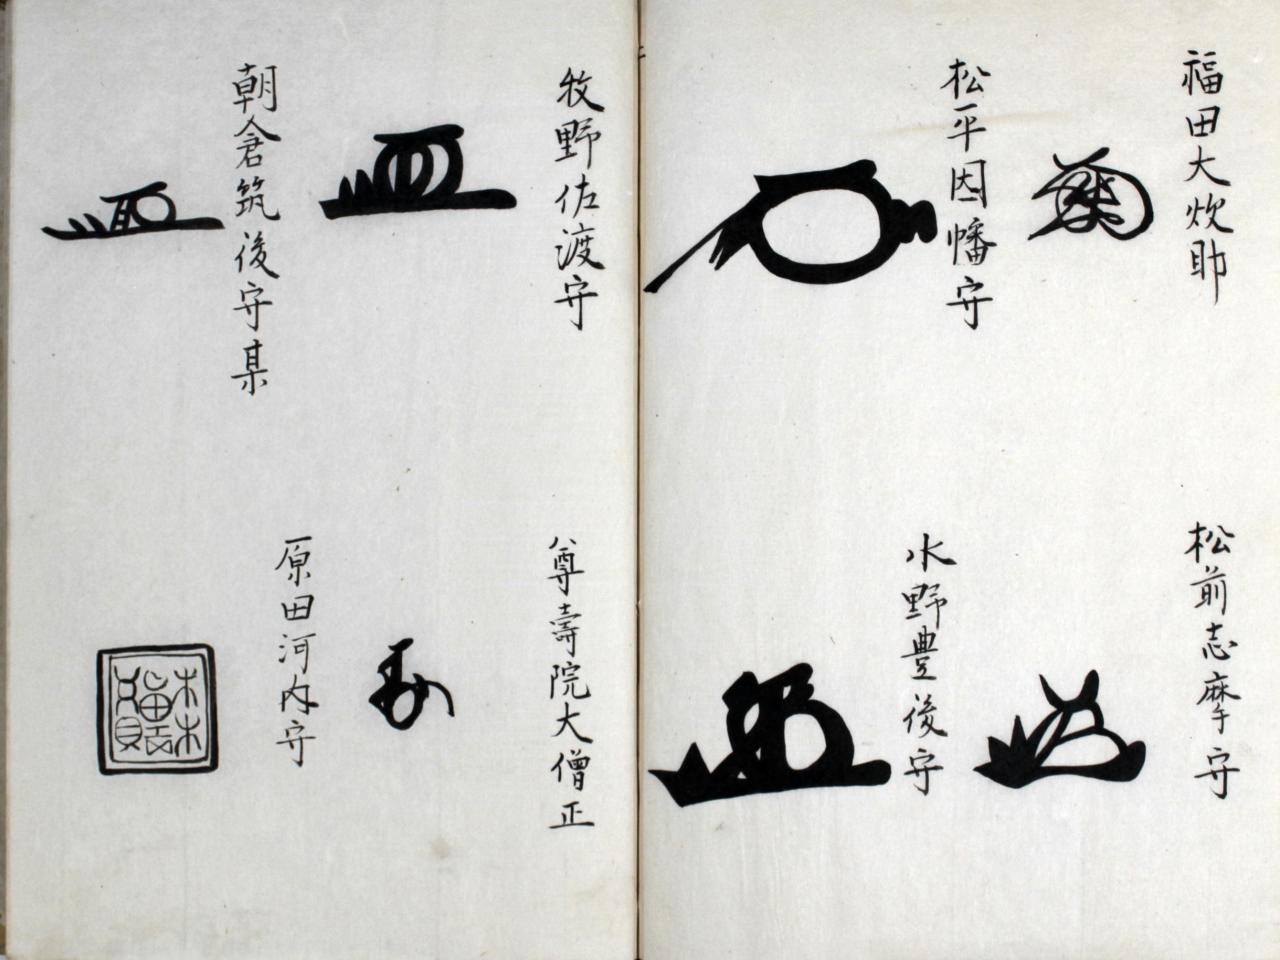 福田大炊助
松平因幡守
松前志摩守
水野豊後守
牧野佐渡守
朝倉筑後守某
尊壽院大僧正
原田河内守